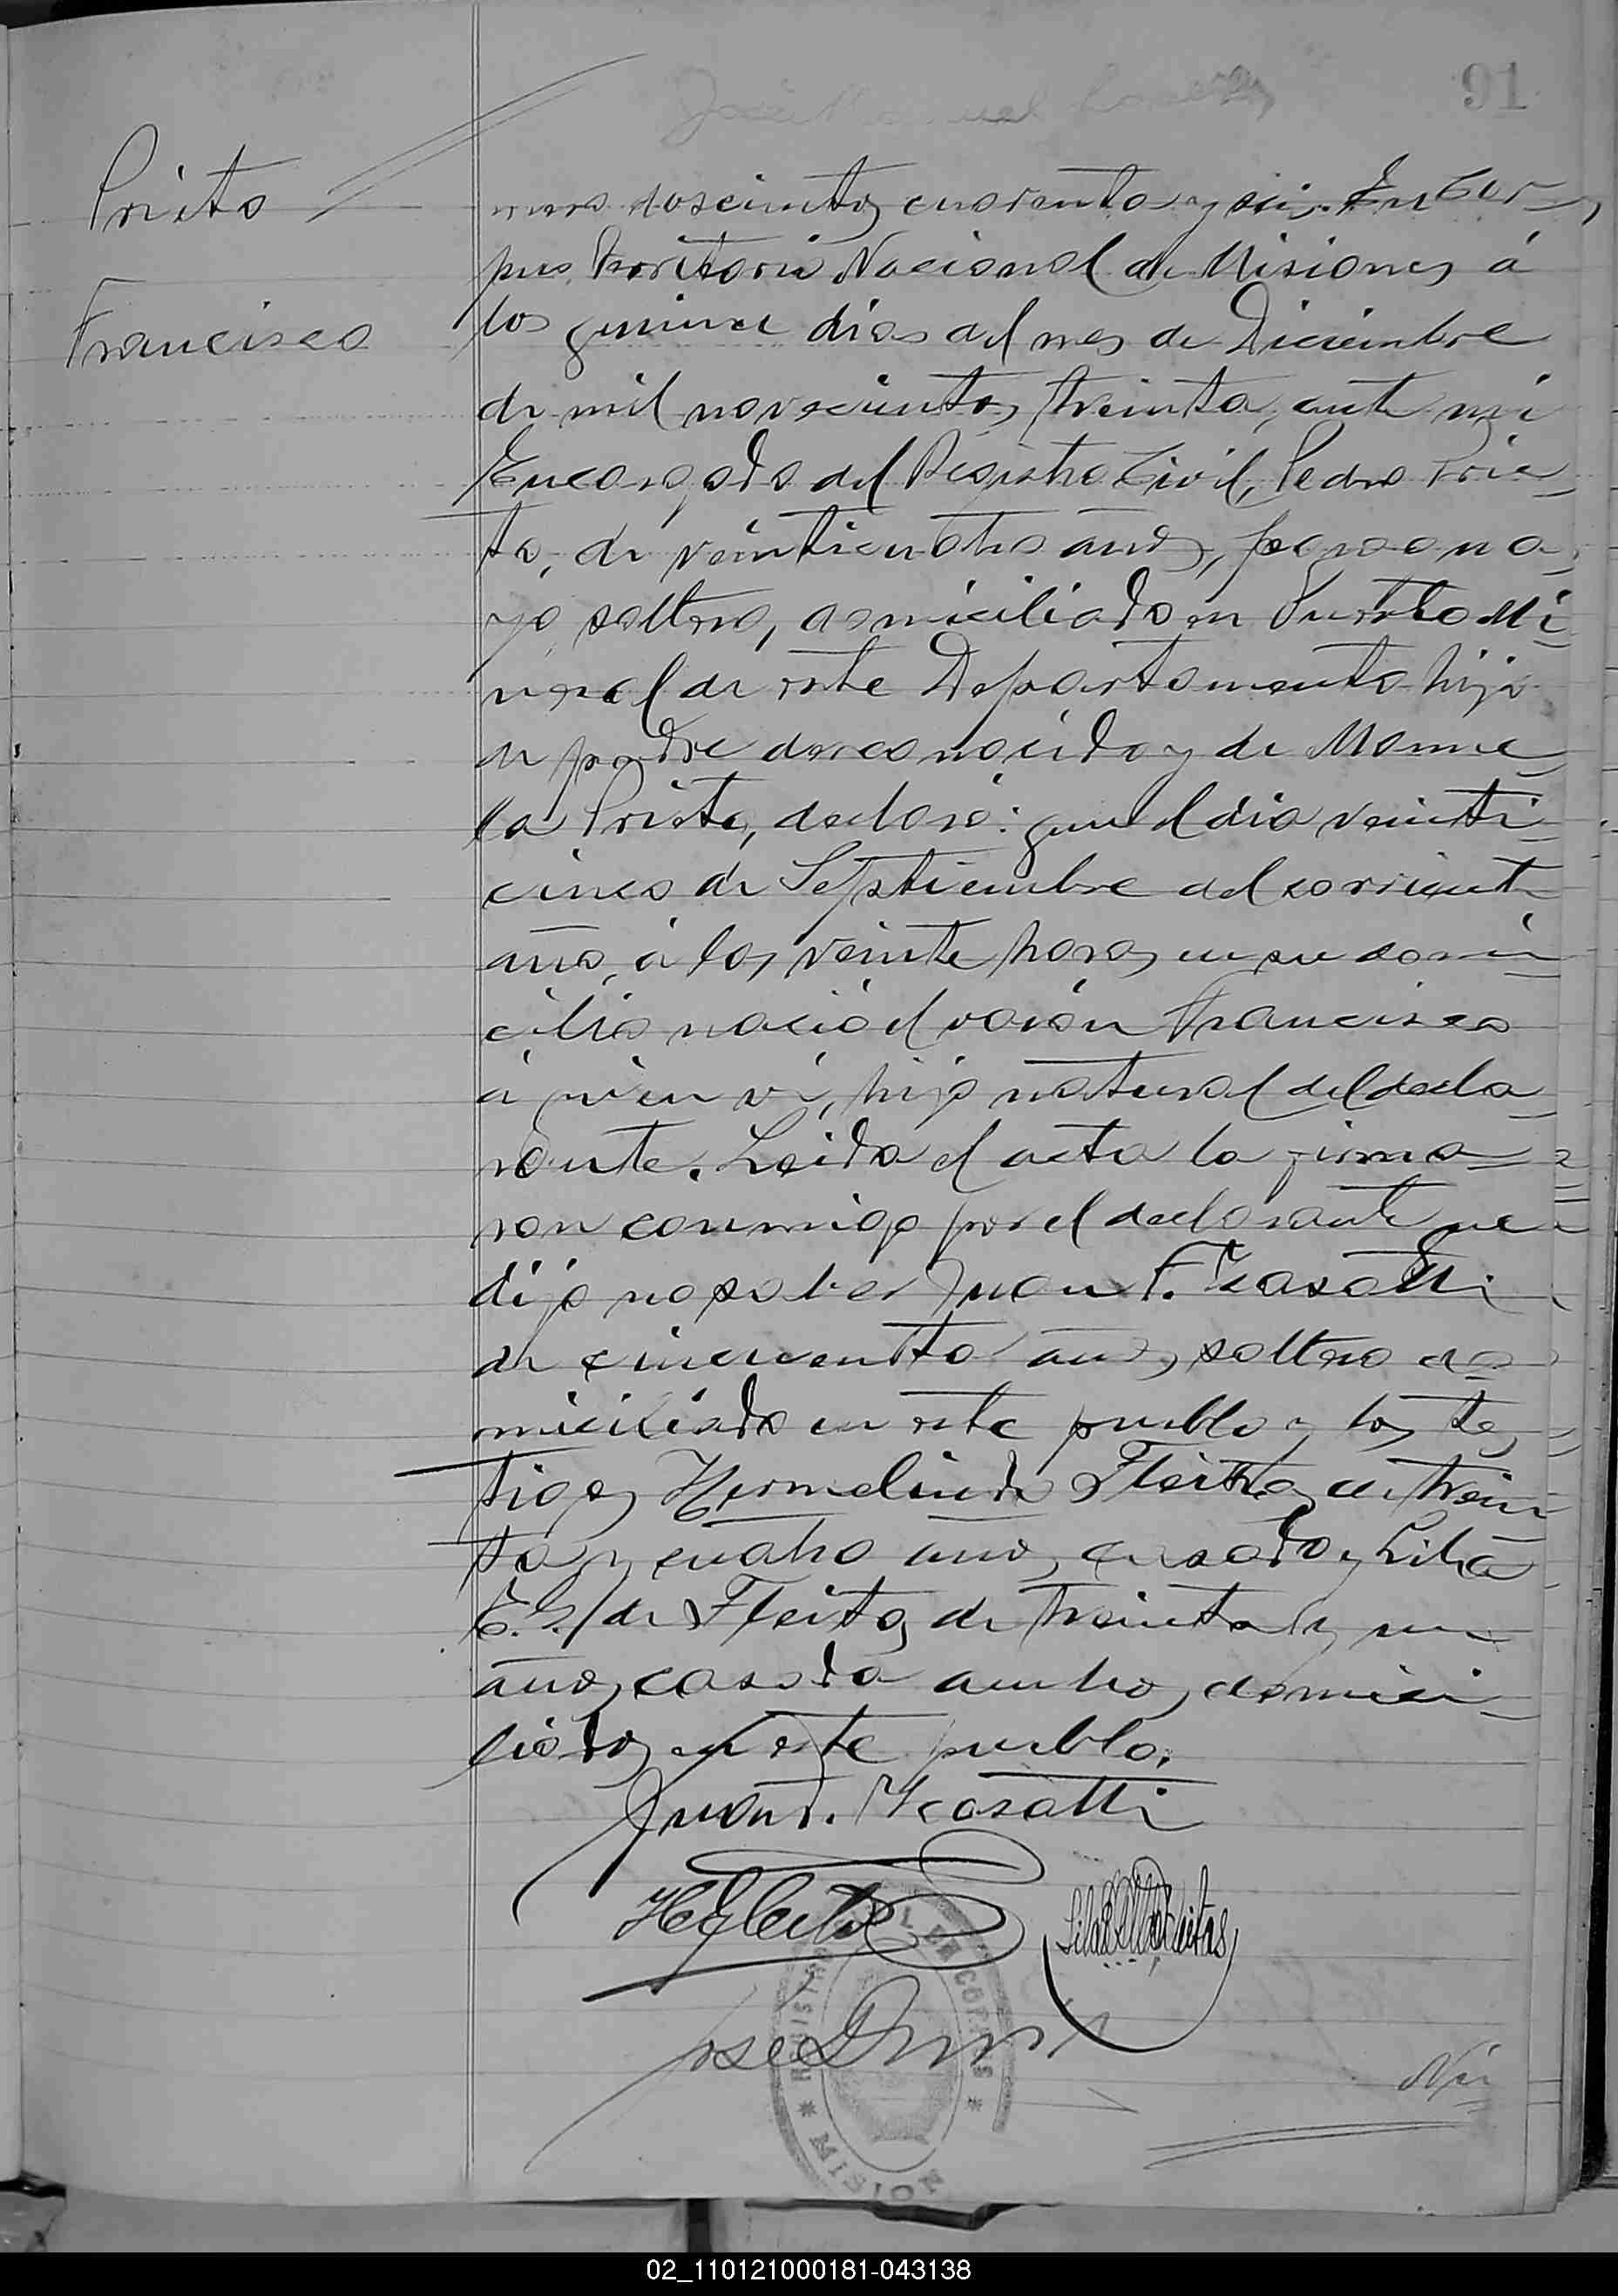 91
Prieto
Francisco
mero doscientos cuarenta y seis. En Cor-
pus Territorio Nacional de Misiones á
los quince dias del mes de Diciembre
de mil novecientos treinta, ante mi
Encargado del Registro Civil, Pedro Prie-
to, de veinticuatro años, paragua-
yo soltero, domiciliado en Puerto Mi-
neral de este Departamento hijo
de padre desconocido y de Manue-
la Prieto, declaró: que el dia veinti-
cinco de Septiembre del corriente
año, á las veinte horas en su domi-
cilio nació el varón Francisco
á quien ví, hijo natural del decla-
rante. Leida el acta la firma-
ron conmigo por el declarante que
dijo no saber Juan F. Ycasatti
de cincuenta años, soltero do-
miciliado en este pueblo y los tes-
tigos Hermelindo Fleitas de trein-
ta y cuatro años, casado y Lila
E. G. de Fleitas de treinta y un
años, casada ambos domici-
liados en este pueblo.
Juan F. Ycasatti
H Fleitas
José
REGISTRO CIVIL EN CORPUS
* MISIONES *
Nú
02_110121000181-043138